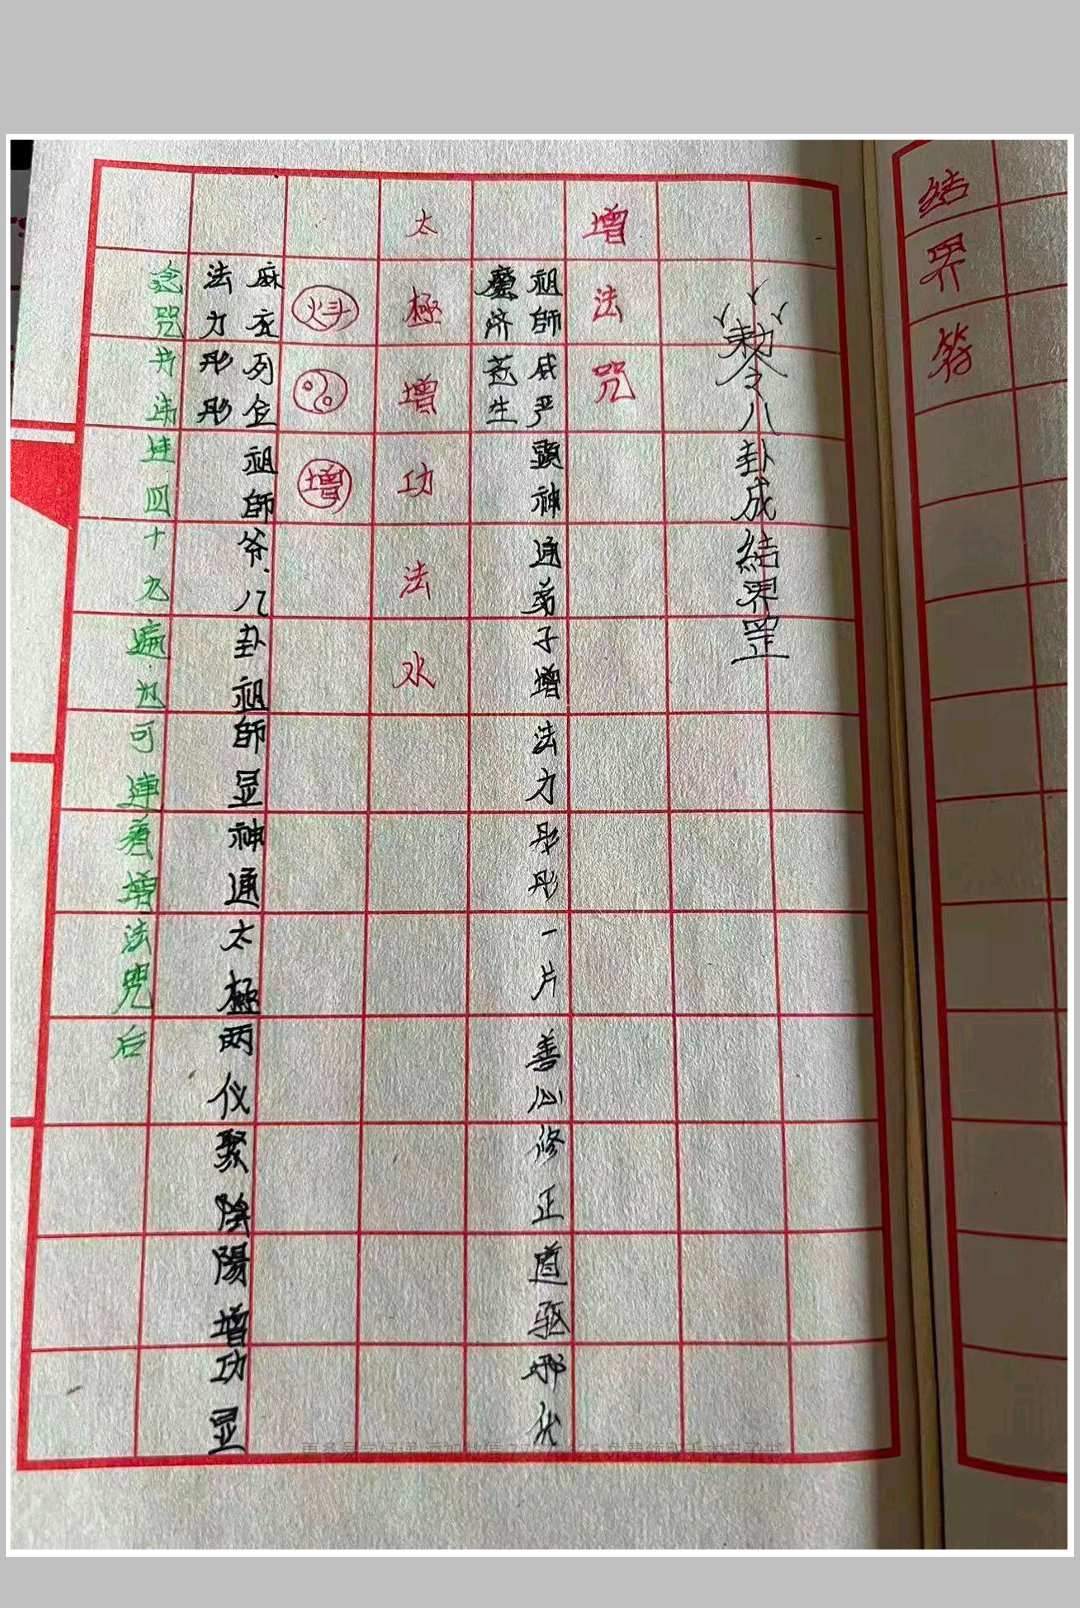 结界符
敕令八卦成結界罡
增法咒
祖師威严顕神通弟子增法力彤彤一片善心修正道驱邪伏
魔济苍生
太極增功法水
增
麻衣列位祖師爷、八卦祖師显神通太極两仪聚陰陽增功显
法力彤彤
念咒书讳連四十九遍也可連着增法咒后